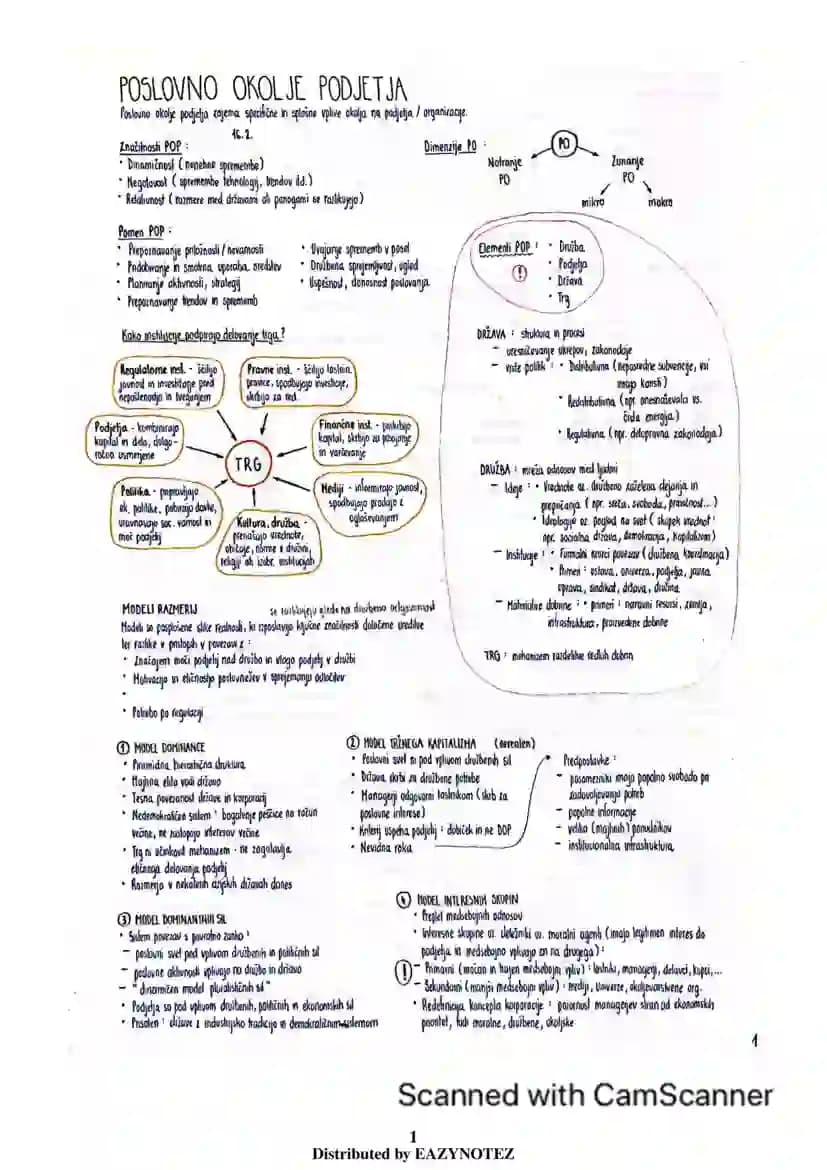 POSLOVNO OKOLJE PODJETJA
Poslovno okolje podjetja zajema specifične in splošne vplive okolja na podjetja / organizacije.
16.2.
Značilnosti POP :
• Dinamičnost ( nenehne spremembe)
• Negotovost ( spremembe tehnologij, trendov itd.)
• Relativnost ( razmere med državami ali panogami se razlikujejo)
Dimenzije PO :
PO
Notranje
PO
Zunanje
PO
mikro
makro
Pomen POP :
• Prepoznavanje priložnosti / nevarnosti
• Pridobivanje in smotrna uporaba sredstev
• Planiranje aktivnosti, strategij
• Prepoznavanje trendov in sprememb
• Uvajanje sprememb v posel
• Družbena sprejemljivost, ugled
• Uspešnost, donosnost poslovanja
Elementi POP :
• Družba
• Podjetja
• Država
• Trg
Kako institucije podpirajo delovanje trga?
Regulatorne inst. - ščitijo
javnost in investitorje pred
nepoštenostjo in tveganjem
Pravne inst. - ščitijo lastnin.
pravice, spodbujajo investicije,
skrbijo za red
Podjetja - kombinirajo
kapital in delo, dolgo-
ročno usmerjene
Finančne inst. - priskrbijo
kapital, skrbijo za posojanje
in varčevanje
TRG
Politika - pripravljajo
ek. politike, pobirajo davke,
uravnavajo soc. varnost in
moč podjetij
Mediji - informirajo javnost,
spodbujajo prodajo z
oglaševanjem
Kultura, družba -
prenašajo vrednote,
običaje, norme v družini,
religiji ali izobr. institucijah
DRŽAVA : struktura in procesi
– uresničevanje ukrepov, zakonodaje
– vrste politik : • Distributivna (neposredne subvencije, vsi
imajo koristi)
• Redistributivna (npr. onesnaževalci vs.
čista energija)
• Regulativna (npr. delopravna zakonodaja)
DRUŽBA : mreža odnosov med ljudmi
– Ideje : • Vrednote oz. družbeno zaželena dejanja in
prepričanja ( npr. sreča, svoboda, pravičnost...)
• Ideologije oz. pogled na svet ( skupek vrednot :
npr. socialna država, demokracija, kapitalizem)
– Institucije : • Formalni vzorci povezav (družbena koordinacija)
• Primeri : ustava, univerza, podjetja, javna
uprava, sindikat, država, družina
– Materialne dobrine : • primeri : naravni resursi, zemlja,
infrastruktura, proizvedene dobrine
TRG : mehanizem razdelitve redkih dobrin
MODELI RAZMERIJ se razlikujejo glede na družbeno odgovornost
Modeli so posplošene slike realnosti, ki izpostavljajo ključne značilnosti določene ureditve
ter razlike v pristopih v povezavi z :
• Značajem moči podjetij nad družbo in vlogo podjetij v družbi
• Motivacijo in etičnostjo poslovnežev v sprejemanju odločitev
•
• Potrebo po regulaciji
① MODEL DOMINANCE
• Piramidna, hierarhična struktura
• Majhna elita vodi državo
• Tesna povezanost države in korporacij
• Nedemokratični sistem : bogatenje peščice na račun
večine, ne zastopajo interesov večine
• Trg ni učinkovit mehanizem - ne zagotavlja
etičnega delovanja podjetij
• Razmerja v nekaterih azijskih državah danes
② MODEL TRŽNEGA KAPITALIZMA (nerealen)
• Poslovni svet ni pod vplivom družbenih sil
• Država skrbi za družbene potrebe
• Managerji odgovorni lastnikom (skrb za
poslovne interese)
• Kriterij uspeha podjetij : dobiček in ne DOP
• Nevidna roka
Predpostavke :
– posamezniki imajo popolno svobodo pri
zadovoljevanju potreb
– popolne informacije
– veliko (majhnih) ponudnikov
– institucionalna infrastruktura
③ MODEL DOMINANTNIH SIL
• Sistem povezav s povratno zanko :
– poslovni svet pod vplivom družbenih in političnih sil
– poslovne aktivnosti vplivajo na družbo in državo
– " dinamičen model pluralističnih sil"
• Podjetja so pod vplivom družbenih, političnih in ekonomskih sil
• Prisoten : države z industrijsko tradicijo in demokratičnim sistemom
④ MODEL INTERESNIH SKUPIN
• Preplet medsebojnih odnosov
• Interesne skupine oz. deležniki oz. moralni agenti (imajo legitimen interes do
podjetja in medsebojno vplivajo en na drugega) :
! – Primarni (močan in hojen medsebojni vpliv) : lastniki, managerji, delavci, kupci,...
– Sekundarni (manjši medsebojni vpliv) : mediji, univerze, okoljevarstvene org.
• Redefinicija koncepta korporacije : pozornost managerjev stran od ekonomskih
prioritet, tudi moralne, družbene, okoljske
1
Scanned with CamScanner
1
Distributed by EAZYNOTEZ